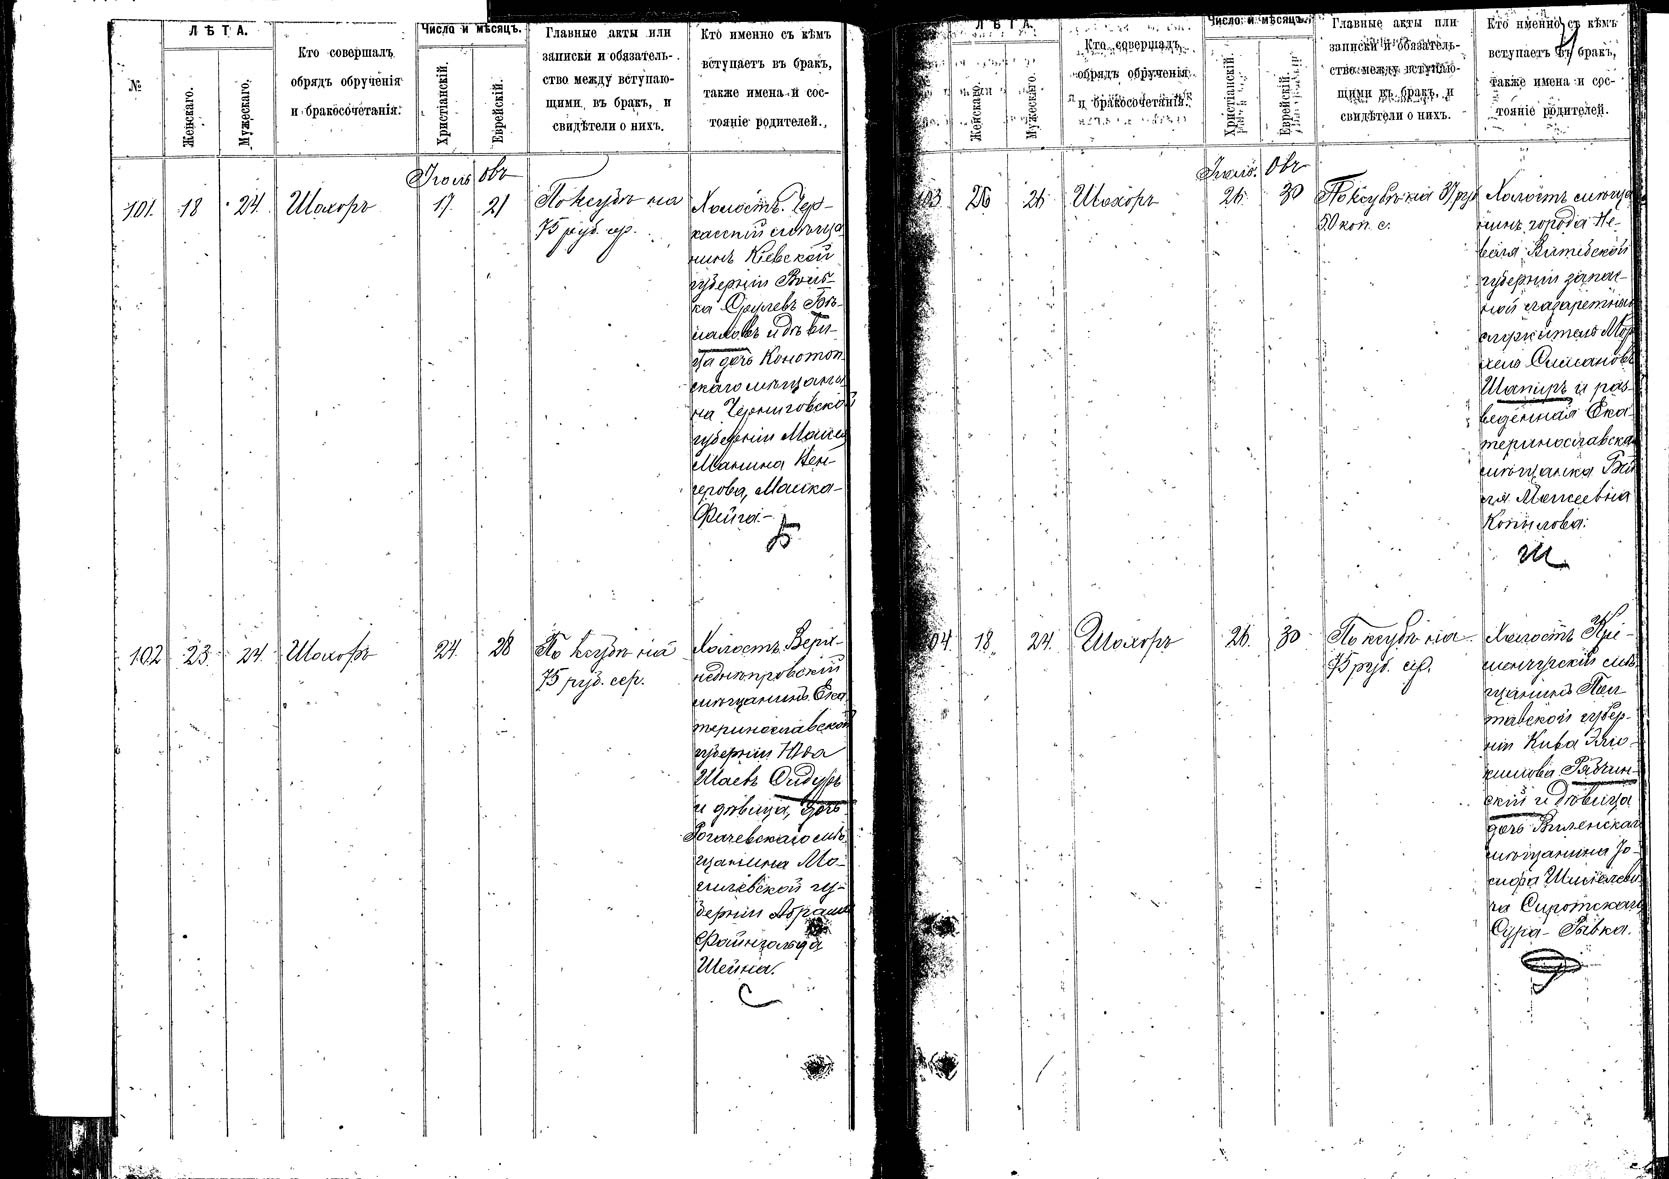 №
ЛѢТА.
Женскаго.
Мужескаго.
Кто совершалъ
обрядъ обрученія
и бракосочетанія.
Число и мѣсяцъ.
Христіанскій.
Еврейскій.
Главные акты или
записки и обязатель-
ство между вступаю-
щими въ бракъ, и
свидѣтели о нихъ.
Кто именно съ кѣмъ
вступаетъ въ бракъ,
также имена и сос-
тояніе родителей.
Іюль Овъ
101. 18 24 Шохоръ 17. 21
По ксубѣ на
75 руб. ср.
Холостъ. Чер-
касскій мѣща
нинъ Кіевской
губерніи Воль-
ка Срулевъ
и дѣви-
ца дочь Конотоп
скаго мѣщани
на Черниговской
губерніи
Манина
Фейга.
Б
102 23. 24 Шохоръ 24. 28
По ксубѣ на
75 руб. сер.
Холостъ Верх-
неднѣпровскій
мѣщанинъ Ека
теринославской
губерніи
Шаевъ Сидуръ
и дѣвица, дочь
Рогачевскаго мѣ
щанина Мо-
гилевской гу-
берніи Абрама
Файнгольда
Шейна.
С
ЛѢТА.
Женскаго.
Мужескаго.
Кто совершалъ
обрядъ обрученія
и бракосочетанія.
Число и мѣсяцъ.
Христіанскій.
Еврейскій.
Главные акты или
записки и обязатель-
ство между вступаю-
щими въ бракъ, и
свидѣтели о нихъ.
Кто именно съ кѣмъ
вступаетъ въ бракъ,
также имена и сос-
тояніе родителей.
Іюль. Овъ
103 26 26 Шохоръ 26. 30
По ксубѣ на 37 руб
50 коп. с.
Холостъ мѣща
нинъ города Не-
веля Витебской
губерніи запас-
ной лазаретный
служитель
Шапиръ и раз
веденная Ека-
теринославская
мѣщанка
ля Моисеевна
Копылова.
Ш
104. 18 24. Шохоръ 26. 30
По ксубѣ на
75 руб. ср.
Холостъ Кре-
менчугскій мѣ
щанинъ Пол-
тавской губер-
ніи Кива Элю-
кимовъ Рябчин-
скій и дѣвица
дочь Виленскаго
мѣщанина Іо-
сифа
ча Сиротскаго
Сура-Рывка.